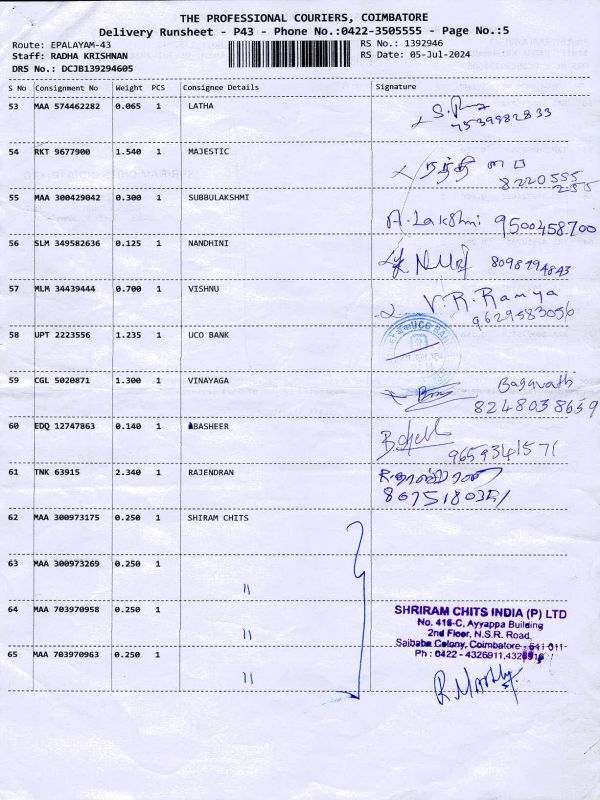 THE PROFESSIONAL COURIERS, COIMBATORE
Delivery Runsheet - P43 - Phone No.:0422-3505555 - Page No.:5
Route: EPALAYAM-43 RS No.: 1392946
Staff: RADHA KRISHNAN RS Date: 05-Jul-2024
DRS No.: DCJB139294605
S No Consignment No Weight PCS Consignee Details Signature
53 MAA 574462282 0.065 1 LATHA
7539982833
54 RKT 9677900 1.540 1 MAJESTIC
8220555
255
55 MAA 300429042 0.300 1 SUBBULAKSHMI
A. Lakshmi 9500458700
56 SLM 349582636 0.125 1 NANDHINI
8098194843
57 MLM 34439444 0.700 1 VISHNU
V. R. Ramya
9629583056
58 UPT 2223556 1.235 1 UCO BANK
UCO BANK
59 CGL 5020871 1.300 1 VINAYAGA
Bagavath
8248038659
60 EDQ 12747863 0.140 1 ABASHEER
9659341571
61 TNK 63915 2.340 1 RAJENDRAN
62 MAA 300973175 0.250 1 SHIRAM CHITS
63 MAA 300973269 0.250 1 "
64 MAA 703970958 0.250 1 "
65 MAA 703970963 0.250 1 "
SHRIRAM CHITS INDIA (P) LTD
No. 416-C, Ayyappa Building
2nd Floor, N.S.R. Road,
Saibaba Colony, Coimbatore - 641 011.
Ph : 0422 - 4326911,